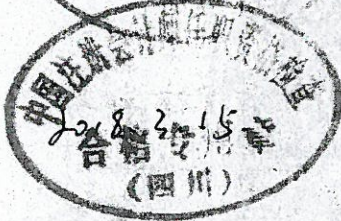 中国注册会计师任职资格检查
2018-3-15
合格专用章
(四川)